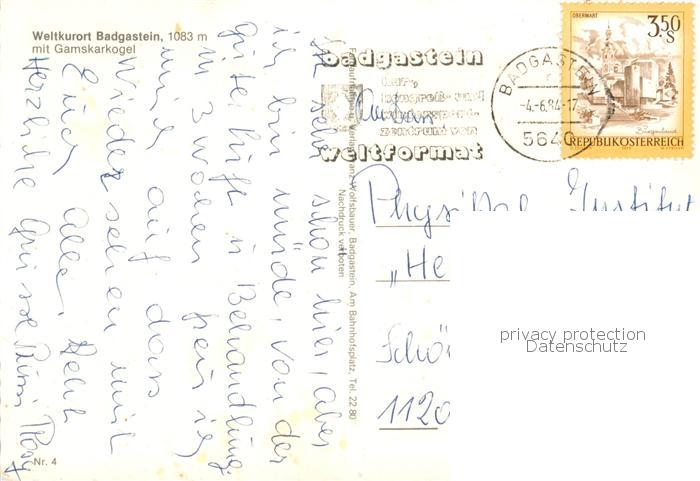 Weltkurort Badgastein, 1083 m
mit Gamskarkogel
badgastein
kur-,
kongreß- und
wintersport-
zentrum von
weltformat
BADGASTEIN
-4.-6.84-17
5640
OBERWART
3,50
S
Burgenland
REPUBLIK ÖSTERREICH
Verlag Franz Wolfsbauer, Badgastein, Am Bahnhofsplatz, Tel. 22 80
Nachdruck verboten
schon hier, aber
ich bin müde, von der
gute Luft u Behandlung.
in 3 Wochen freu ich
mich auf das
Wiedersehen mit
Euch alle. Liebe
Herzliche Grüsse
Physikal. Institut
"He
Schö
1120
privacy protection
Datenschutz
Nr. 4